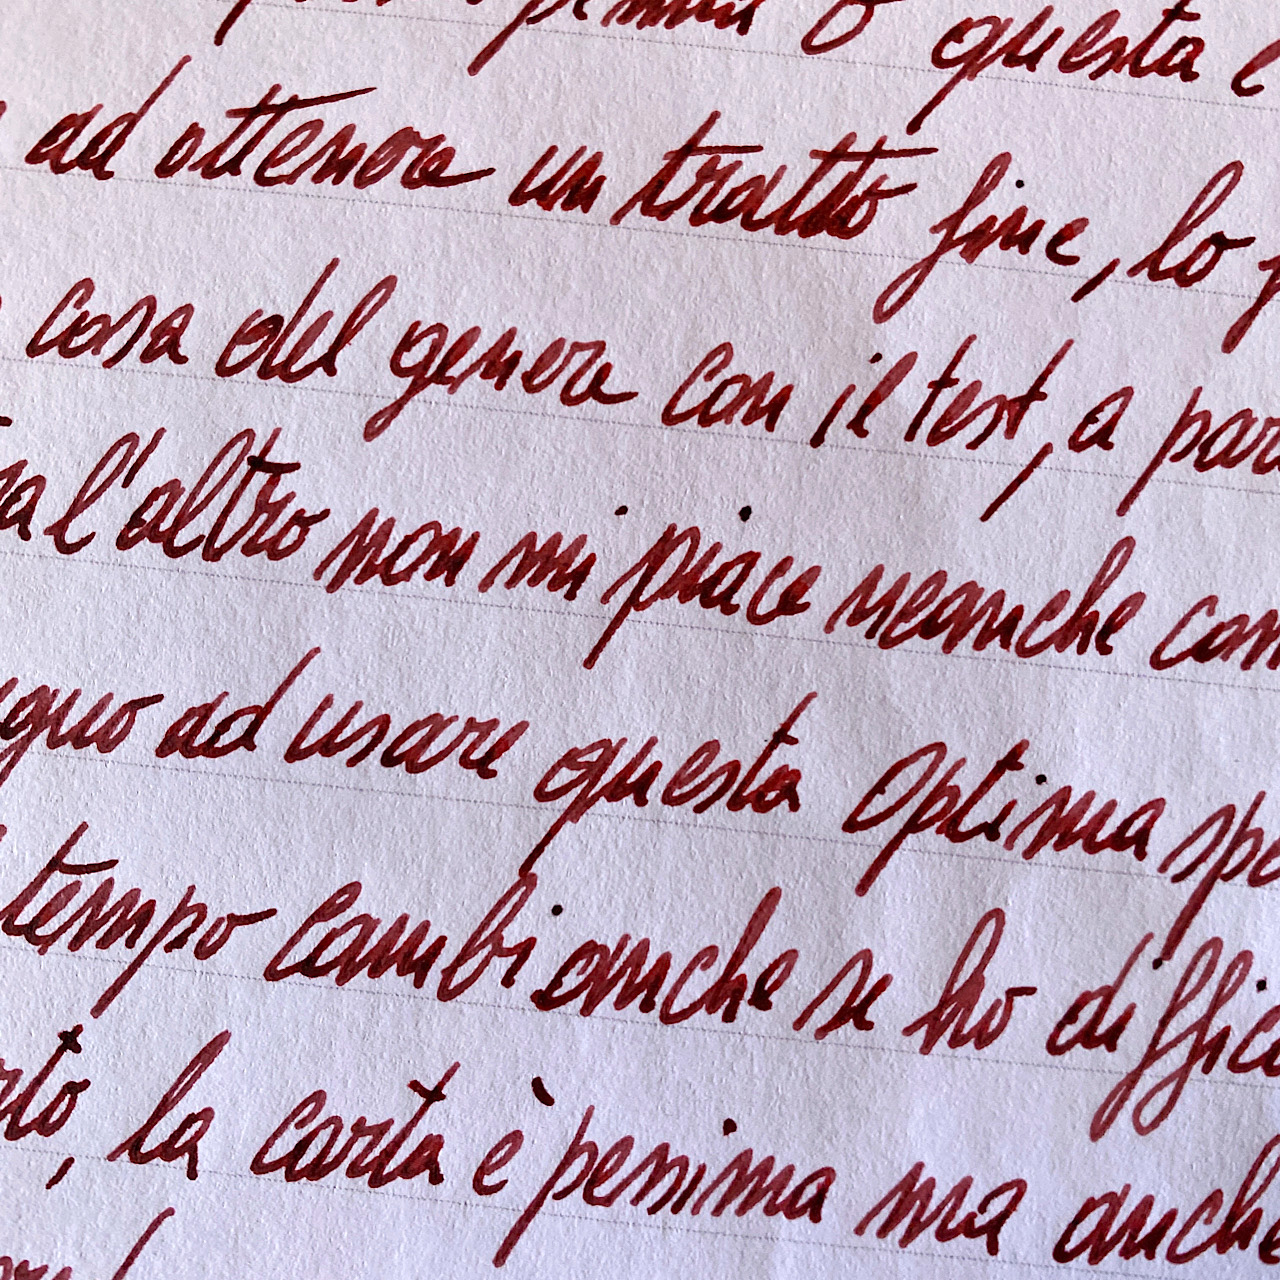 questa è
ad ottenere un tratto fine, lo
cosa del genere con il test, a
l'altro non mi piace neanche
ad usare questa Optima
tempo cambi anche se ho
la carta è pessima ma anche